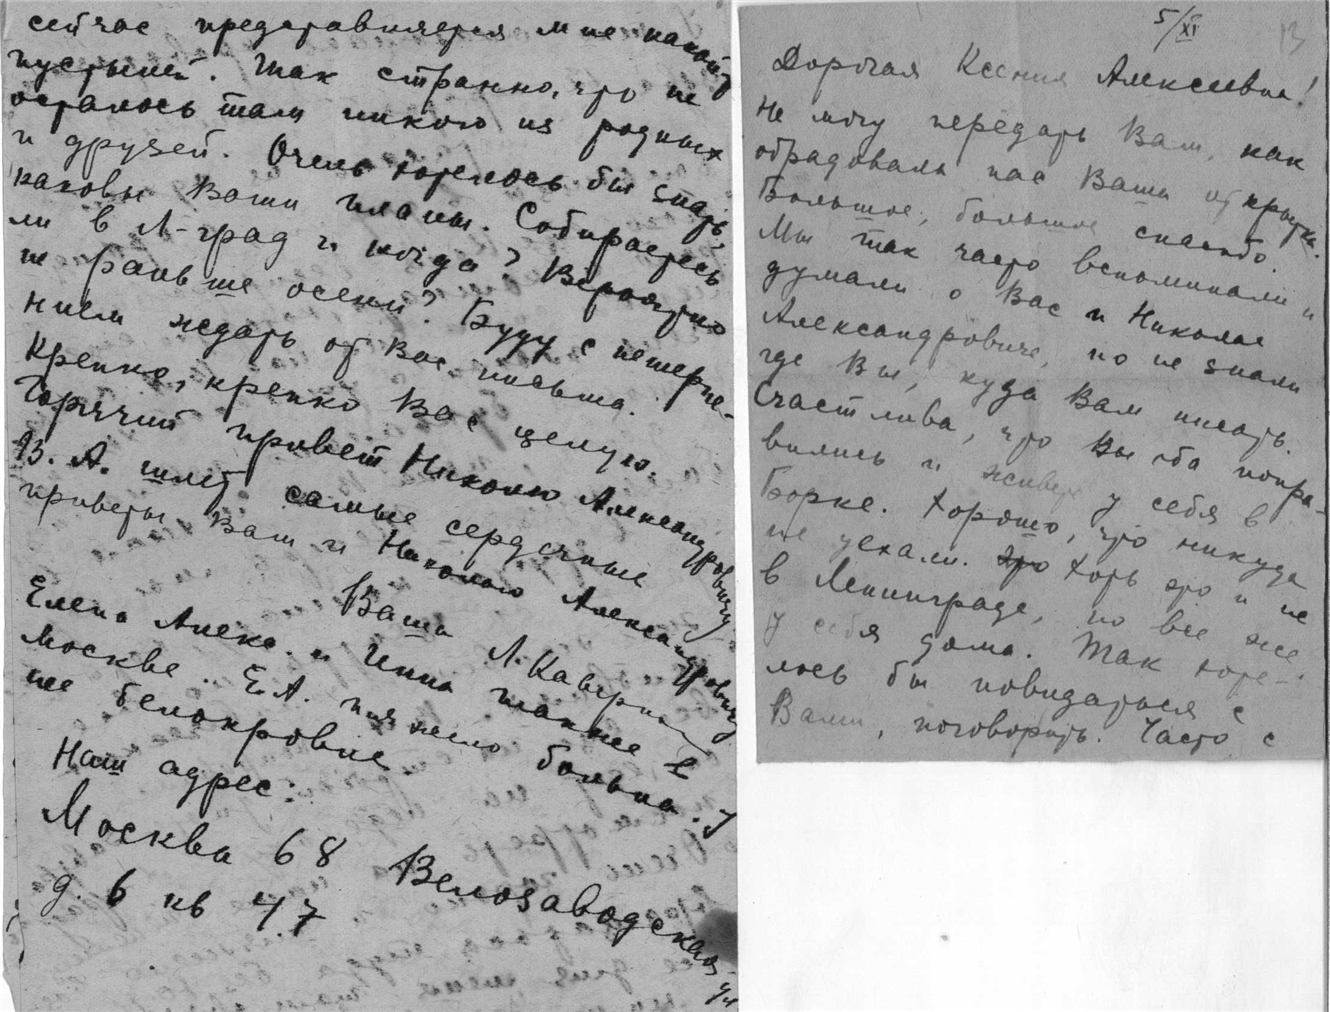 сейчас представляется мне какой-то
пустыней. Так странно, что не
осталось там никого из родных
и друзей. Очень хотелось бы знать,
каковы Ваши планы. Собираетесь
ли в Л-град и когда? Вероятно
не раньше осени? Буду с нетерпе-
нием ждать от Вас письма.
Крепко, крепко Вас целую.
Горячий привет Николаю Александровичу
В. А. шлет самые сердечные
приветы Вам и Николаю Александровичу
Ваша Л. Каверина
Елена Алекс. и Инна также в
Москве. Е.А. тяжело больна. У
нее белокровие
Наш адрес:
Москва 68 Велозаводская
ул
д. 6 кв 47
5/XI
13
Дорогая Ксения Алексеевна!
Не могу передать Вам, как
обрадовала нас Ваша открытка.
Большое, большое спасибо.
Мы так часто вспоминали и
думали о Вас и Николае
Александровиче, но не знали
где Вы, куда Вам писать.
Счастлива, что Вы оба попра-
вились и живете у себя в
Борке. Хорошо, что никуда
не уехали. Хоть это и не
в Ленинграде, но все же
у себя дома. Так хоте-
лось бы повидаться с
Вами, поговорить. Часто с